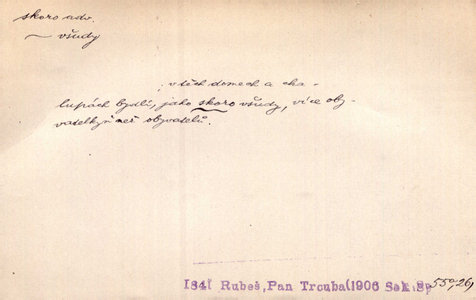 skoro adv.
~ všudy
; v těch domech a cha-
lupách bydlí, jako skoro všudy, více oby-
vatelkyň než obyvatelů.
1841 Rubeš, Pan Trouba (1906 Seb. Sp 55a, 26,